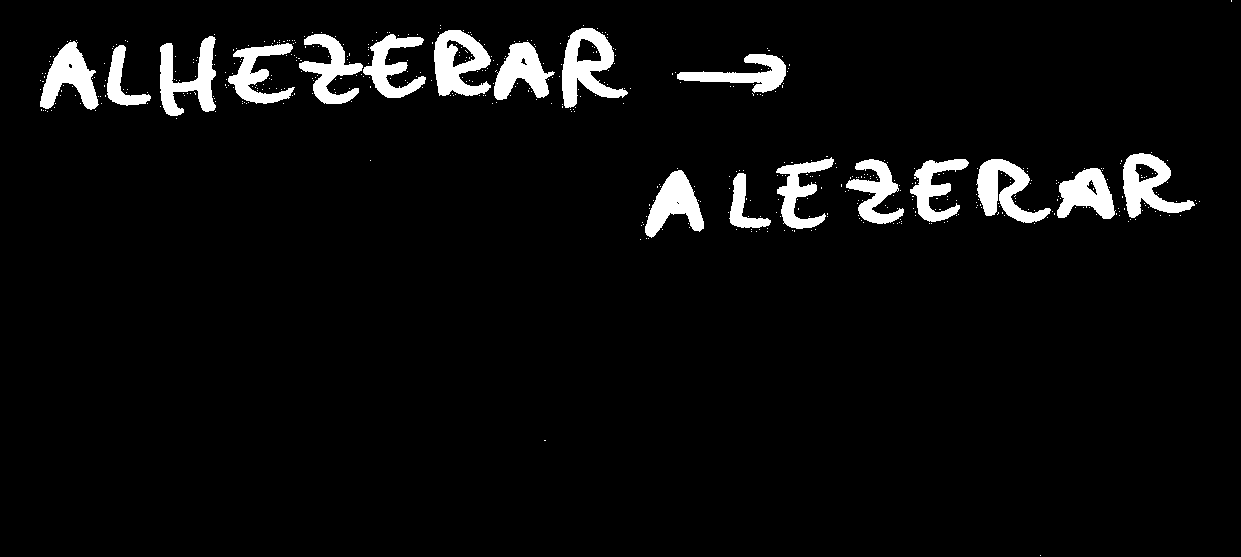 ALHEZERAR →
ALEZERAR